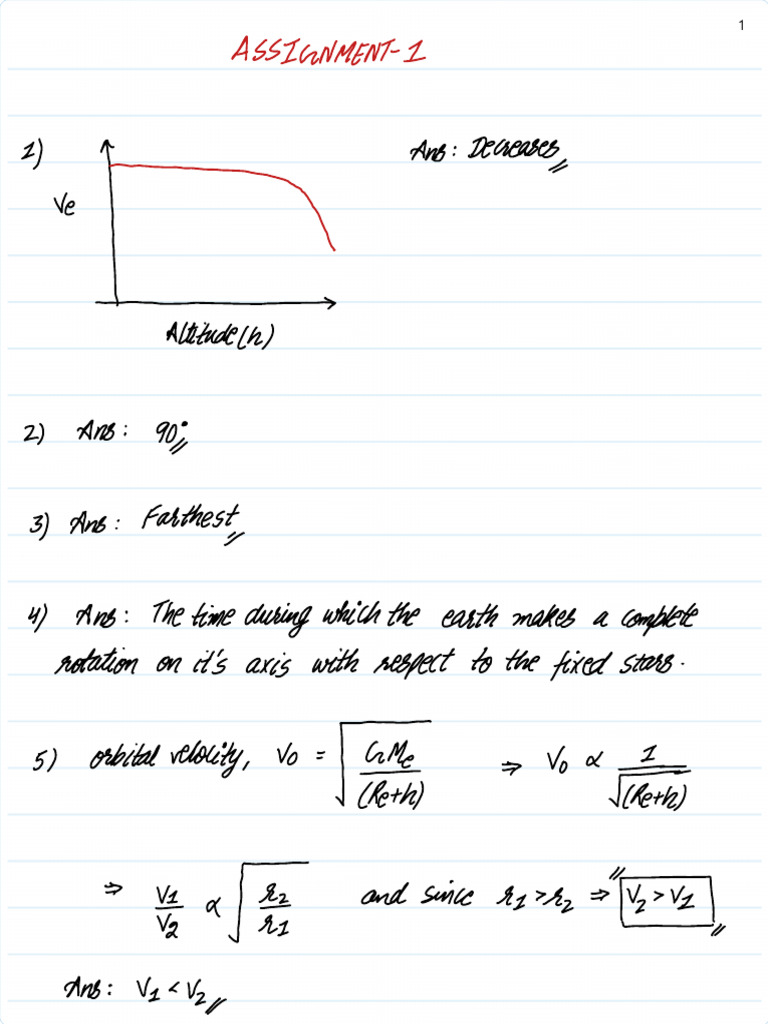 1
ASSIGNMENT-1
1) Ans: Decreases
Ve
Altitude(h)
2) Ans: 90°
3) Ans: Farthest
4) Ans: The time during which the earth makes a complete
rotation on it's axis with respect to the fixed stars.
5) orbital velocity, Vo = √(GMe/(Re+h)) ⇒ Vo ∝ 1/√(Re+h)
⇒ V1/V2 ∝ √(r2/r1) and since r1>r2 ⇒ V2>V1
Ans: V1<V2